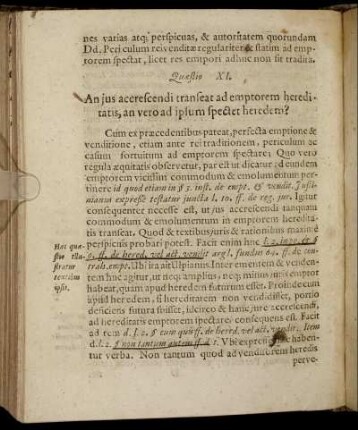 nes varias atq; perspicuas, & autoritatem quorundam
Dd. Periculum rei venditæ regulariter & statim ad emp-
torem spectat, licet res emptori adhuc non sit tradita.
Quæstio XI.
An jus accrescendi transeat ad emptorem heredi-
tatis, an vero ad ipsum spectet heredem?
Cum ex præcedentibus pateat, perfecta emptione &
venditione, etiam ante rei traditionem, periculum &
casum fortuitum ad emptorem spectare; Quo vero
regula æquitatis observetur, par est ut dicatur ad eundem
emptorem vicissim commodum & emolumentum per-
tinere id quod etiam in § 3. inst. de empt. & vendit. Justi-
nianus expresse testatur juncta l. 10. ff. de reg. jur. Igitur
consequenter necesse est, ut jus accrescendi tanquam
commodum & emolumentum in emptorem heredita-
tis transeat. Quod & textibus juris & rationibus maxime
perspicuis probari potest. Facit enim huc l. 2.
Hac quæ-
stio illu-
stratur
ipsis.
ff. de hered. vel act. vendit arg l. fundus
empt. Ubi ita ait Ulpianus: Inter ementem & venden-
tem hoc agitur, ut neq; amplius neq; minus juris emptor
habeat, quam apud heredem futurum esset. Proinde cum
apud heredem, si hereditatem non vendidisset, portio
deficiens futura fuisset, idcirco & hanc, jure accrescendi,
ad hereditatis emptorem spectare, consequens est. Facit
ad rem d. l. 2. § cum quis ff. de hered. vel act. vendit. Item
d. l. 2. § non tantum autem ff. d. t. Ubi expresse haben-
tur verba. Non tantum quod ad venditorem heredis
perve-